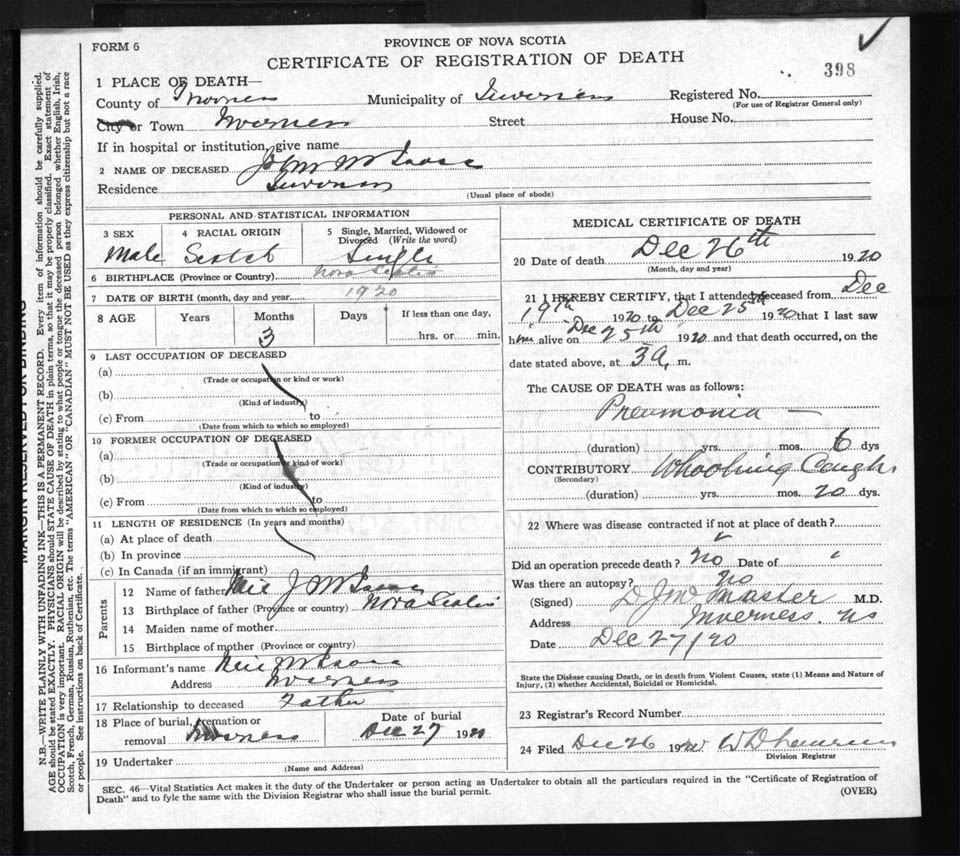 FORM 6
PROVINCE OF NOVA SCOTIA
CERTIFICATE OF REGISTRATION OF DEATH
398
1 PLACE OF DEATH—
County of Inverness Municipality of Inverness Registered No.
(For use of Registrar General only)
City or Town Inverness Street House No.
If in hospital or institution, give name
2 NAME OF DECEASED John McIsaac
Residence Inverness
(Usual place of abode)
PERSONAL AND STATISTICAL INFORMATION
3 SEX 4 RACIAL ORIGIN 5 Single, Married, Widowed or Divorced (Write the word)
Male Scotch Single
6 BIRTHPLACE (Province or Country) Nova Scotia
7 DATE OF BIRTH (month, day and year) 1920
8 AGE Years Months Days If less than one day,
3 hrs. or min.
9 LAST OCCUPATION OF DECEASED
(a)
(Trade or occupation or kind or work)
(b)
(Kind of industry)
(c) From to
(Date from which to which so employed)
10 FORMER OCCUPATION OF DECEASED
(a)
(Trade or occupation or kind of work)
(b)
(Kind of industry)
(c) From to
(Date from which to which so employed)
11 LENGTH OF RESIDENCE (In years and months)
(a) At place of death
(b) In province
(c) In Canada (if an immigrant)
Parents
12 Name of father Neil J McIsaac
13 Birthplace of father (Province or country) Nova Scotia
14 Maiden name of mother
15 Birthplace of mother (Province or country)
16 Informant's name Neil McIsaac
Address Inverness
17 Relationship to deceased Father
18 Place of burial, cremation or removal Inverness Date of burial Dec 27 1920
19 Undertaker
(Name and Address)
MEDICAL CERTIFICATE OF DEATH
20 Date of death Dec 26th 1920
(Month, day and year)
21 I HEREBY CERTIFY, that I attended deceased from Dec
19th 1920 to Dec 25th 1920 that I last saw
him alive on Dec 25th 1920 and that death occurred, on the
date stated above, at 3 a, m.
The CAUSE OF DEATH was as follows:
Pneumonia —
(duration) yrs. mos. 6 dys
CONTRIBUTORY Whooping Cough
(Secondary)
(duration) yrs. mos. 20 dys.
22 Where was disease contracted if not at place of death?
Did an operation precede death? No Date of
Was there an autopsy? No
(Signed) M.D.
Address Inverness. NS
Date Dec 27/20
State the Disease causing Death, or in death from Violent Causes, state (1) Means and Nature of
Injury, (2) whether Accidental, Suicidal or Homicidal.
23 Registrar's Record Number
24 Filed Dec 26 19
Division Registrar
SEC. 46—Vital Statistics Act makes it duty of the Undertaker or person acting as Undertaker to obtain all the particulars required in the "Certificate of Registration of
Death" and to fyle the same with the Division Registrar who shall issue the burial permit. (OVER)
MARGIN RESERVED FOR BINDING
N.B.—WRITE PLAINLY WITH UNFADING INK—THIS IS A PERMANENT RECORD. Every item of information should be carefully supplied.
AGE should be stated EXACTLY. PHYSICIANS should STATE CAUSE OF DEATH in plain terms, so that it may be properly classified. Exact statement of
OCCUPATION is very important. RACIAL ORIGIN will be described by stating to what people or tongue the deceased person belonged whether English, Irish,
Scotch, French, German, Russian, Ruthenian, etc. The terms "AMERICAN" OR "CANADIAN" MUST NOT BE USED as they express citizenship but not a race
or people. See instructions on back of Certificate.